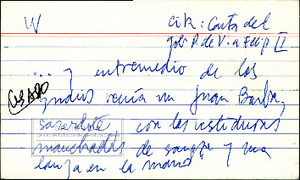 W
cit: Carta del
Gob P. de V. a Felip II
... y entremedio de los
USADO
indios venía un Juan Barba,
sacerdote con las vestiduras
manchadas de sangre y una
lanza en la mano